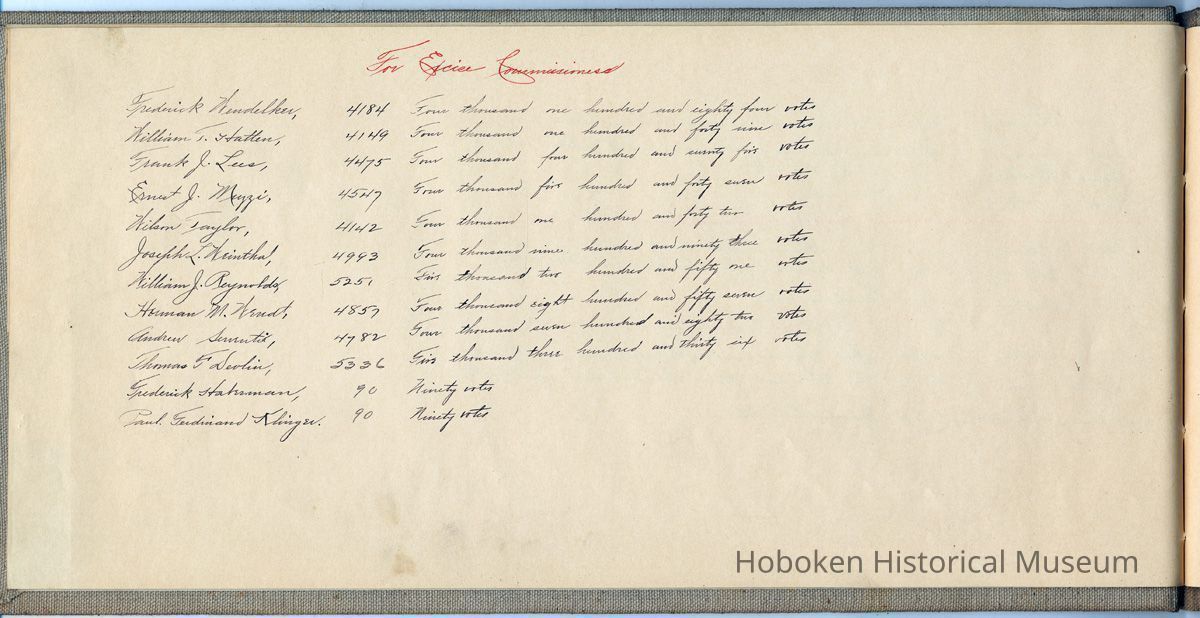 For Excice Commissioners
Frederick Wendelken, 4184 Four thousand one hundred and eighty four votes
William T. Hatten, 4149 Four thousand one hundred and forty nine votes
Frank J. Lees, 4475 Four thousand four hundred and seventy five votes
Ernest J. Muzzi, 4547 Four thousand five hundred and forty seven votes
Wilson Taylor, 4142 Four thousand one hundred and forty two votes
Joseph L. 4993 Four thousand nine hundred and ninety three votes
William J. Reynolds, 5251 Five thousand two hundred and fifty one votes
Herman W. Wendt, 4857 Four thousand eight hundred and fifty seven votes
Andrew 4782 Four thousand seven hundred and eighty two votes
Thomas F Devlin, 5336 Five thousand three hundred and thirty six votes
Frederick 90 Ninety votes
Paul. Ferdinand Klinger. 90 Ninety votes
Hoboken Historical Museum